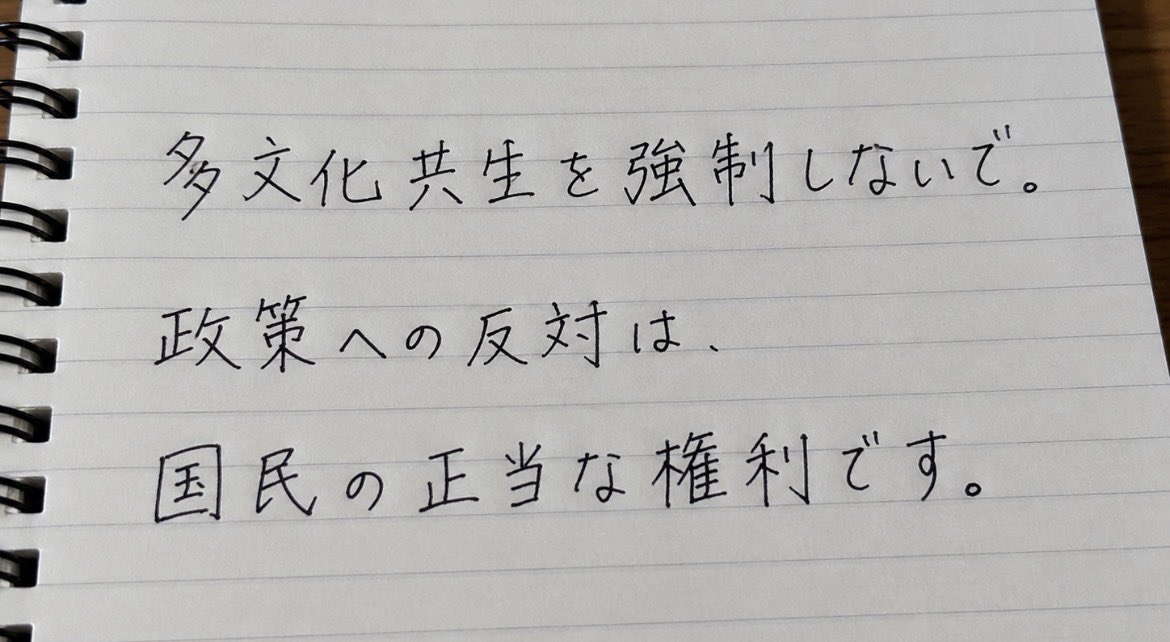 多文化共生を強制しないで。
政策への反対は、
国民の正当な権利です。